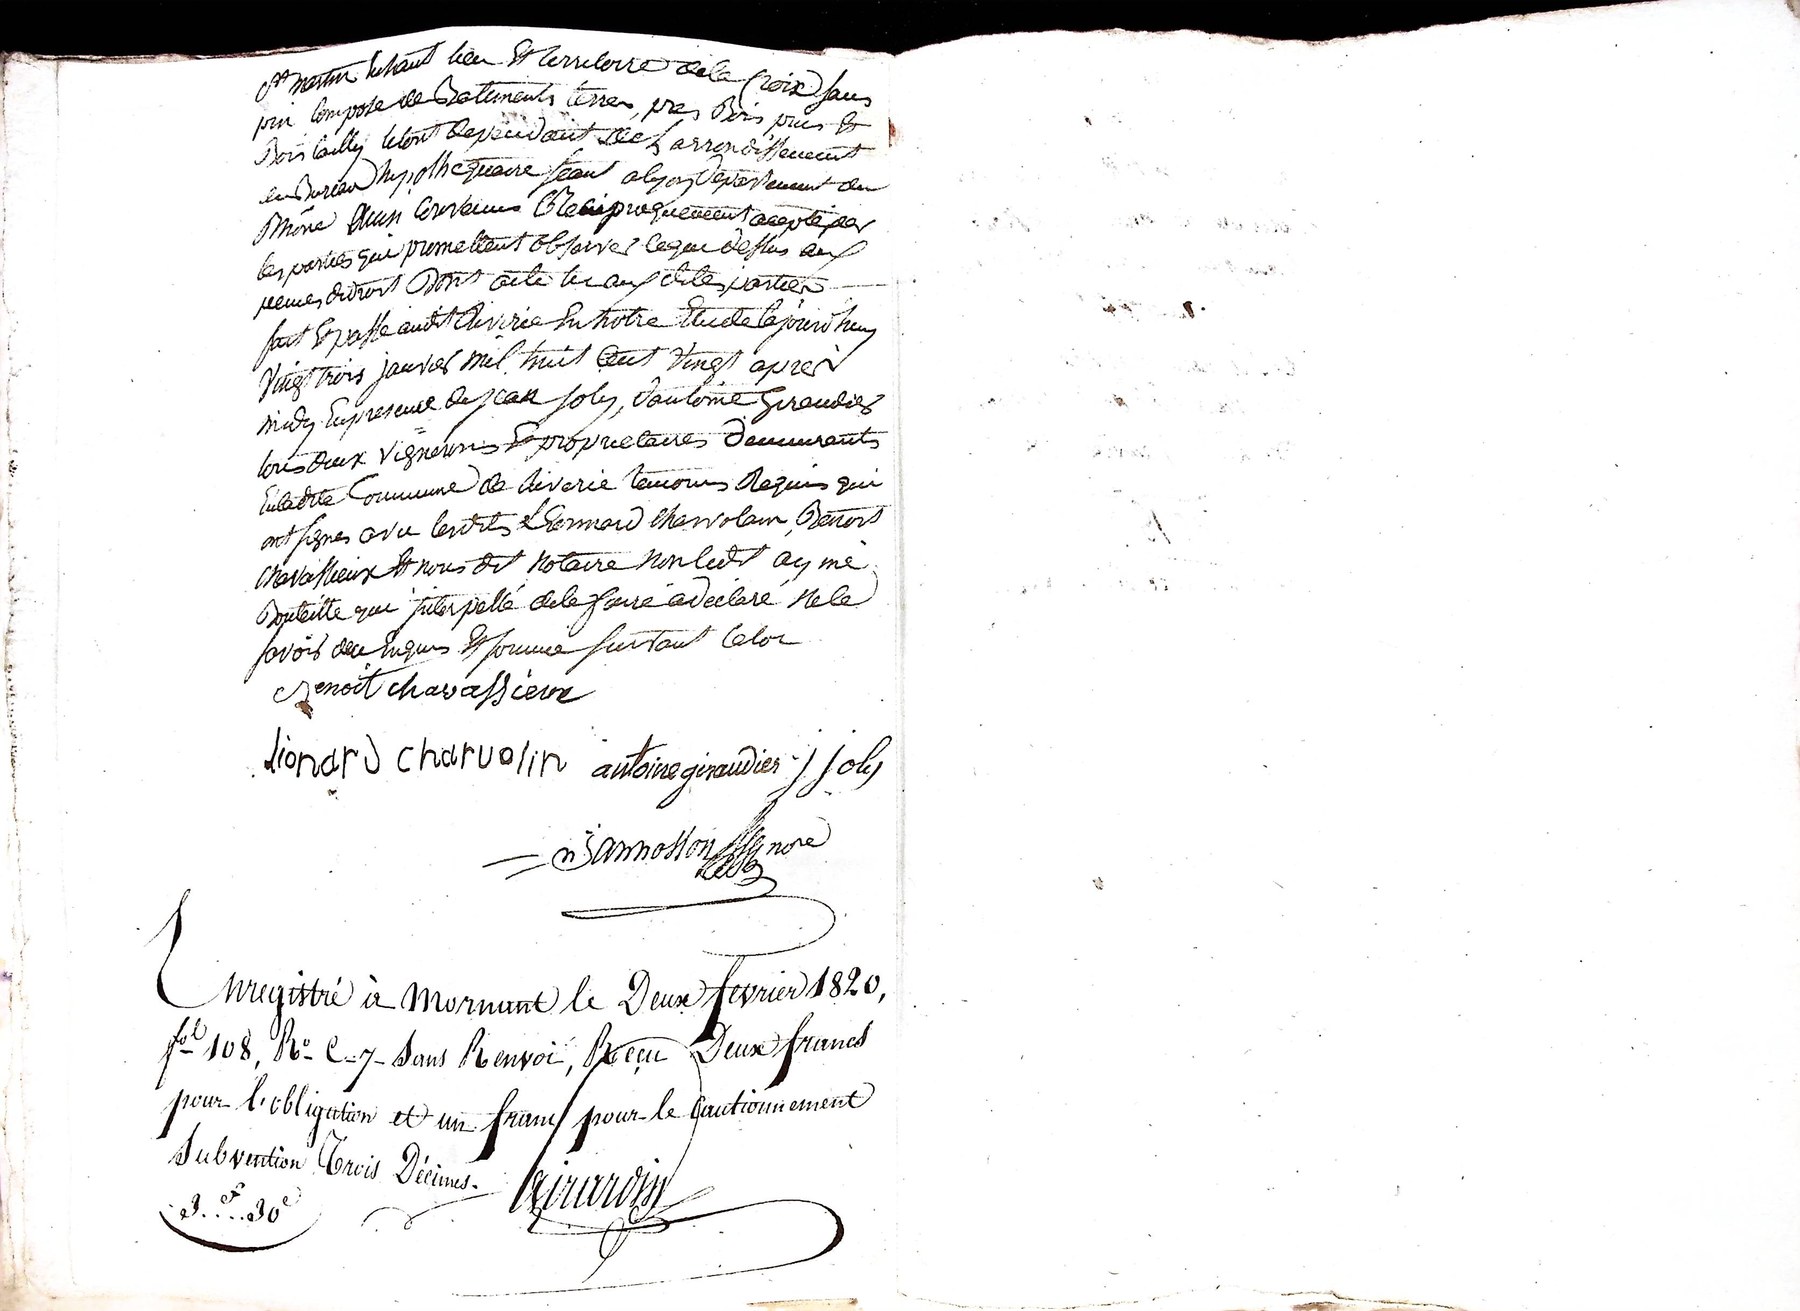 St martin enhaut lieu Et territoire dela Croix sans
pin Composé de Batiments terres, prez Bois pins &
Bois tailly letout dependant de Larrondissement
du Bureau hypothequaire seant a lyon Departement du
Rhône Ainsi Convenus & Reciproquement accepté par
les parties qui promettent observer ceque dessus aux
peines dedroit Dont acte lu aux dites parties
fait Et passé audit Riverie En notre Etude Cejourd'huy
Vingt trois janvier mil huit Cent vingt après
midy En presence de jean joly, d'antoine Giraudier
tous deux vignerons Et proprietaires Demeurants
Enladite Commune de Riverie temoins Requis qui
ont signés avec lesdits Leonnard Charvolin, Benoit
Chavassieux Et nous dit notaire non ledit aymé
Bouteille qui interpellé dele faire adéclaré Nele
savoir dece Enquis Et sommé suivant laloi
Benoit chavassieux
Lionard charvolin antoine giraudier j joly
nore
Enregistré à Mornant le Deux fevrier 1820,
fol 108, Ro C. 7 Sans Renvoi, Reçu Deux francs
pour l'obligation et un franc pour le Cautionnement
Subvention Trois Décimes. Girardin
3f....30c